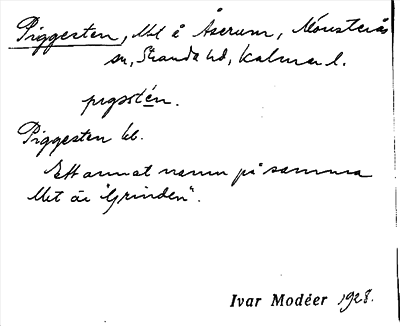 Piggesten, Mt å Åserum, Mönsterås
sn, Stranda hd, Kalmar l.
pıgəstén.
Piggesten kb.
Ett annat namn på samma
Mt är "Grinden".
Ivar Modéer 1928.